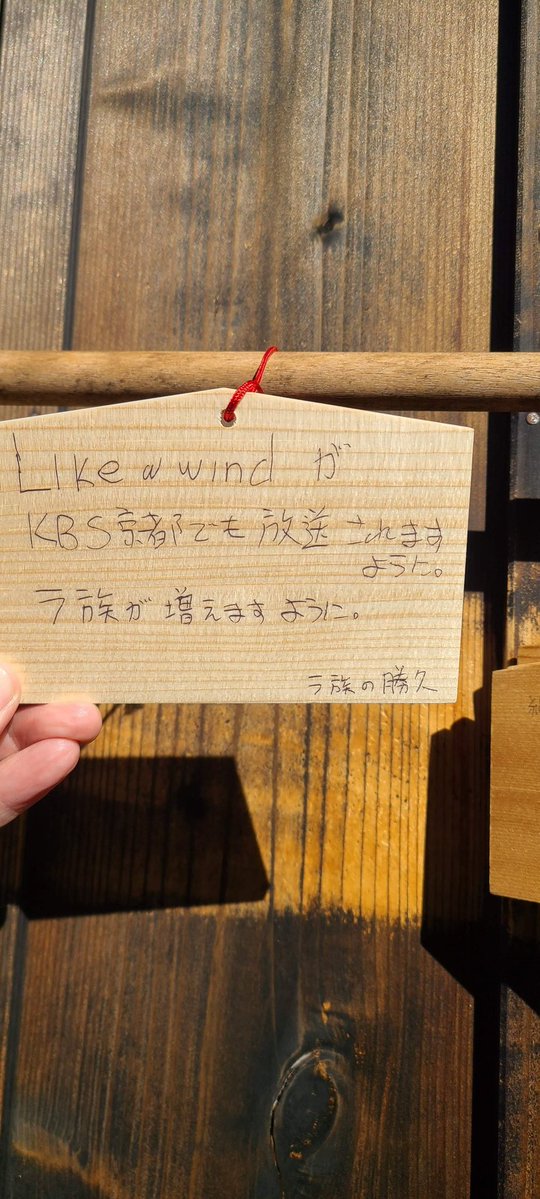 Like a wind が
KBS京都でも放送されます
ように。
ラ族が増えますように。
ラ族の勝久